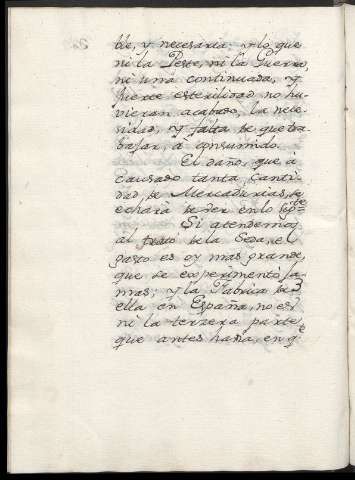 ble, y necesaria, y lo que
ni la Peste, ni la Guerra,
ni una continuada, y
fuerte esterilidad no hu-
vieran acabado, la nece-
sidad, y falta de que tra-
bajar, a consumido.
El daño, que à
causado tanta canti-
dad de Mercadurias, se
echarà de ver en lo sigte
Si atendemos
al trato de la Seda, el
gasto es oy mas grande,
que se experimentò ja-
mas; y la Fabrica de
ella en España, no es
ni la terzera parte
que antes havia, en q̃